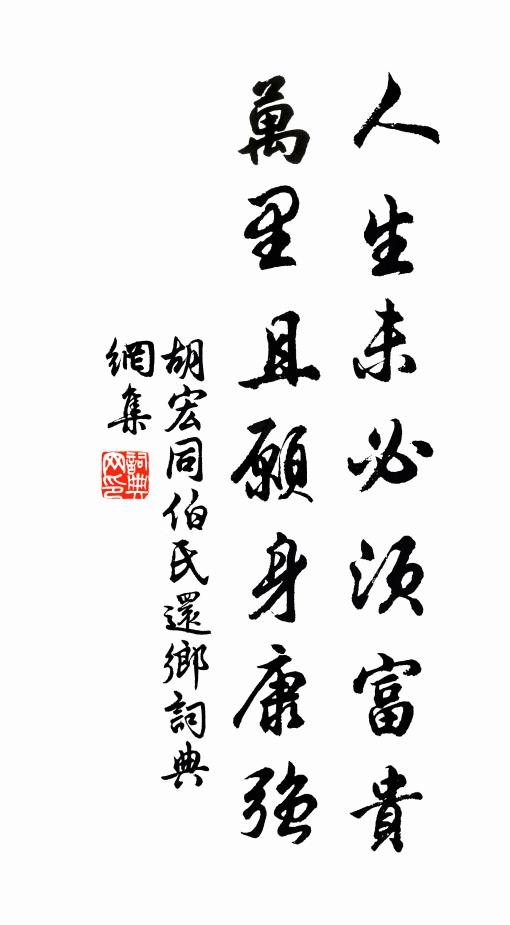 人生未必須富貴
萬里且願身康強
胡宏同伯氏還鄉詞典
網集
詞典網印